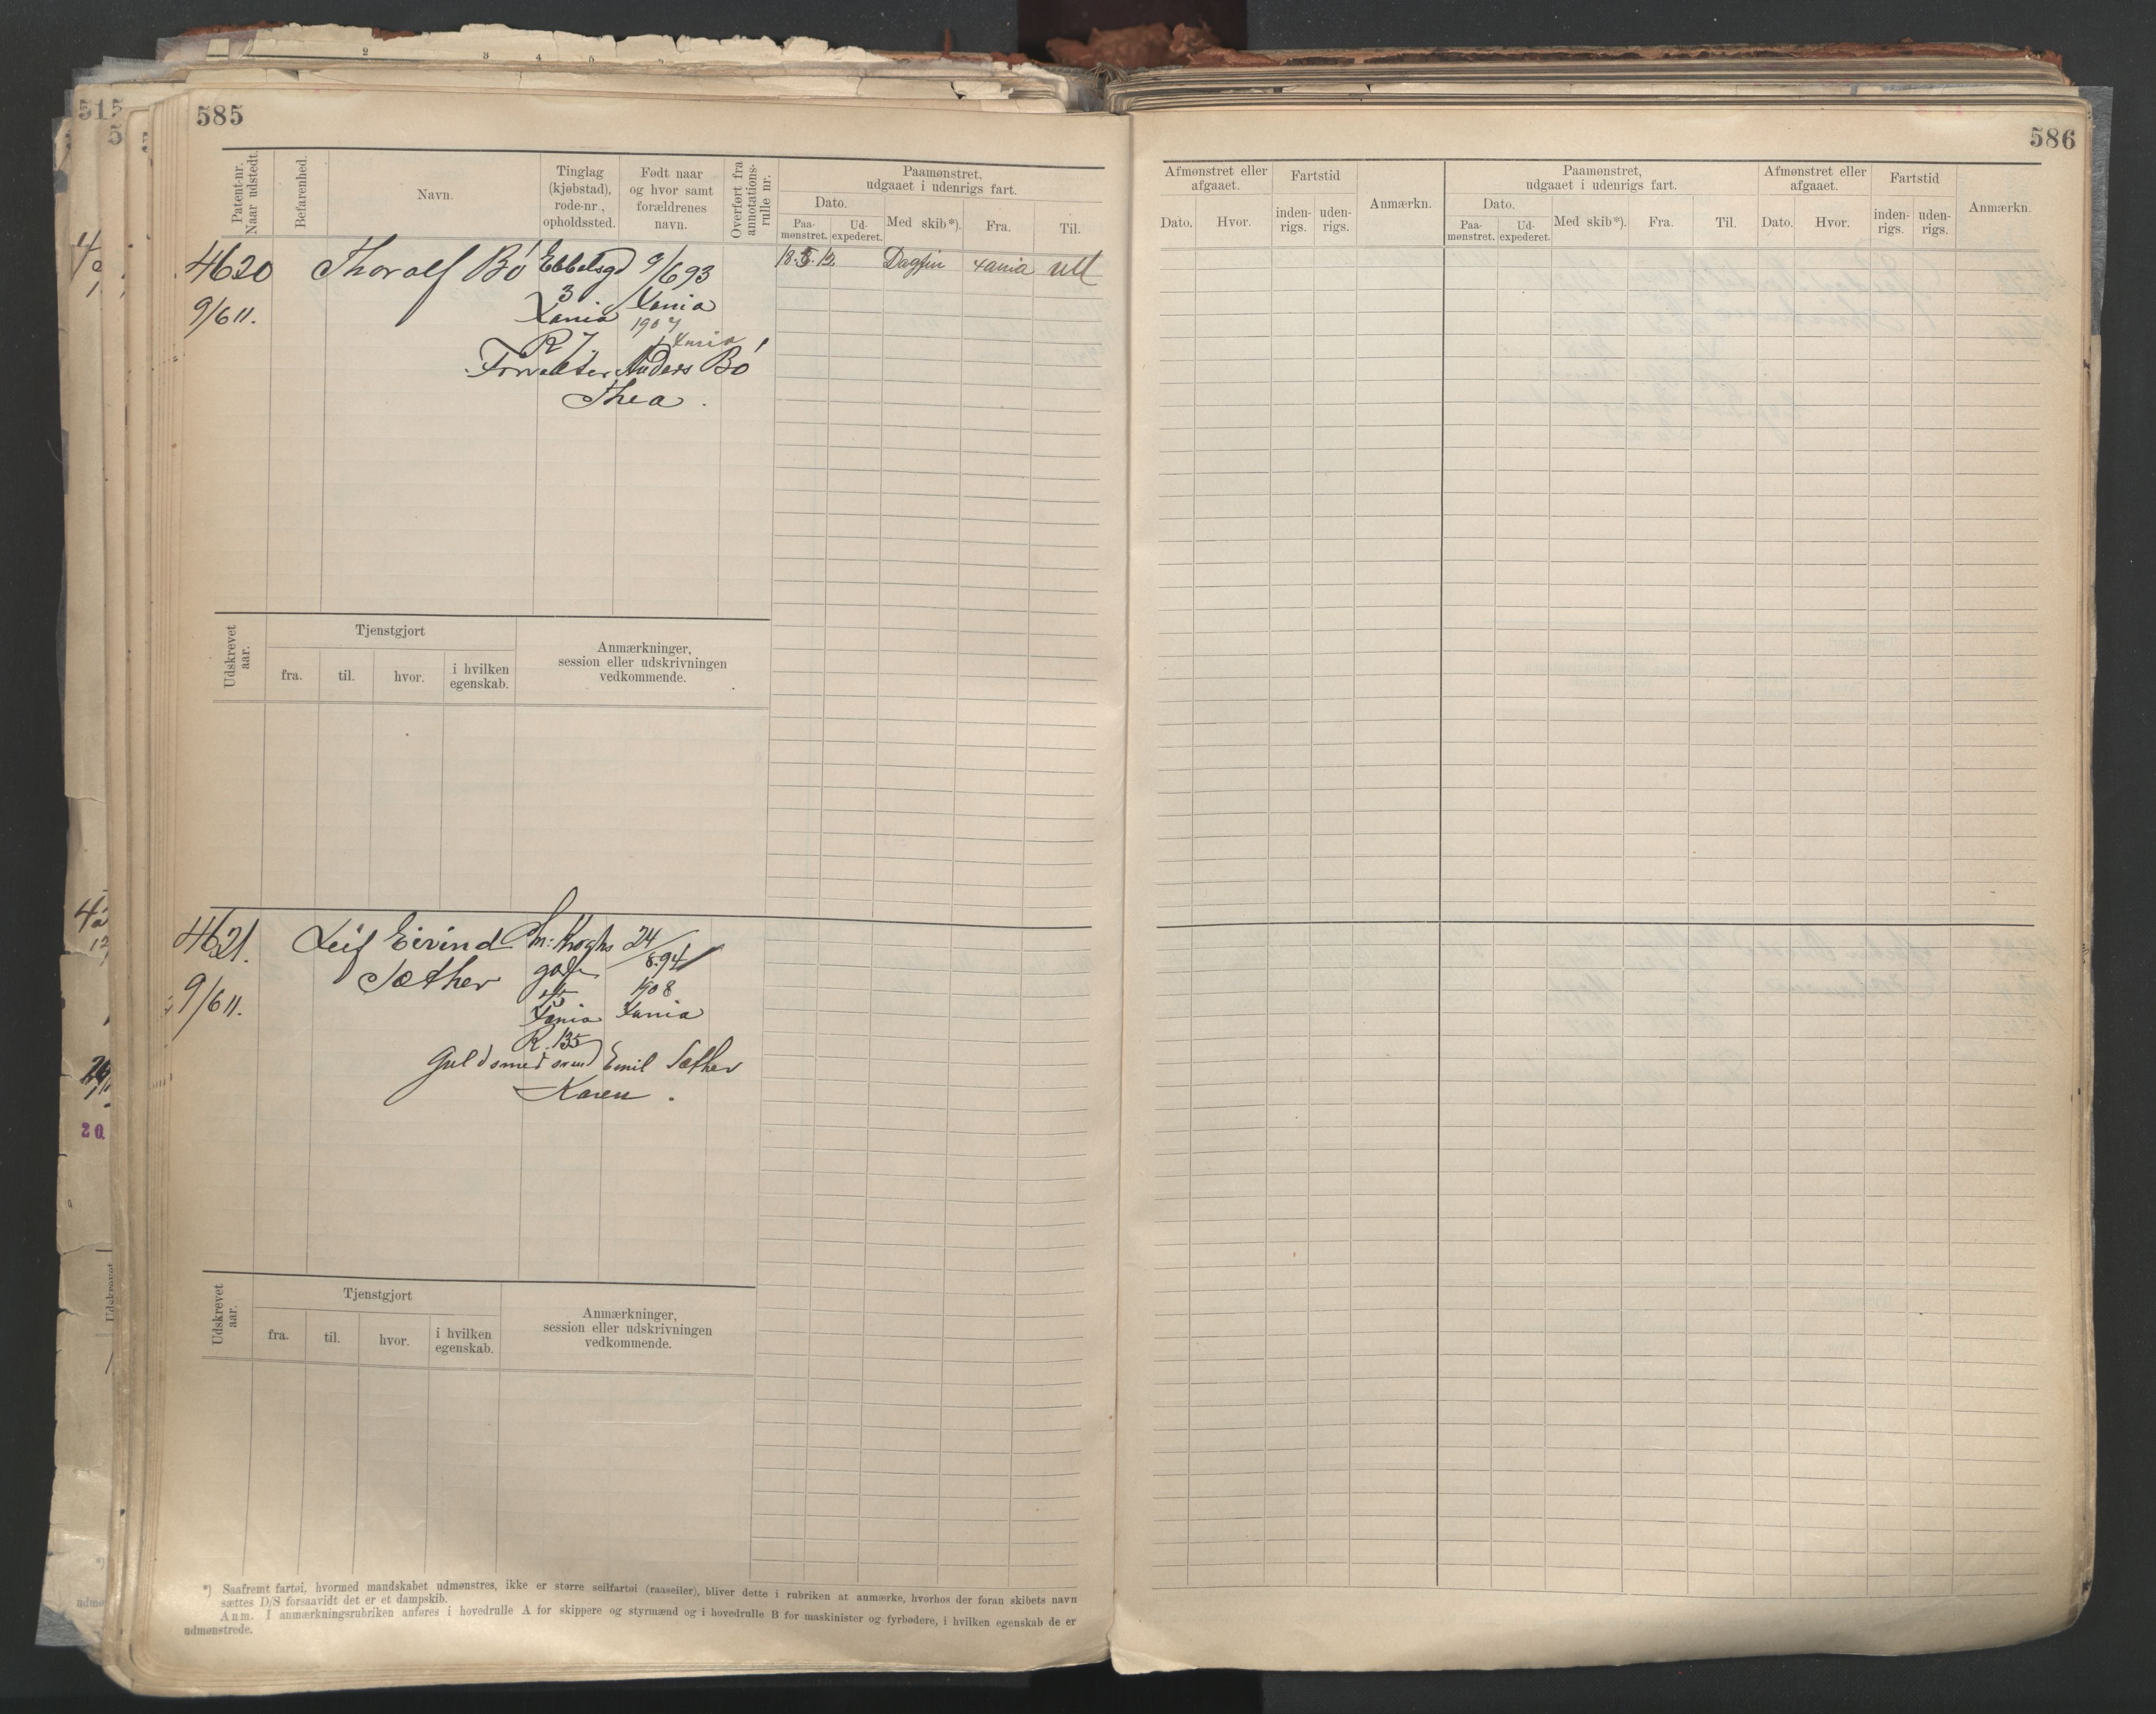 585
Patent-nr. Naar udstedt.
Befarenhed.
Navn.
Tinglag (kjøbstad), rode-nr., opholdssted.
Født naar og hvor samt forældrenes navn.
Overført fra annotations-rulle nr.
Paamønstret, udgaaet i udenrigs fart.
Dato.
Paa-mønstret.
Ud-expederet.
Med skib*).
Fra.
Til.
4620 Thoralf Bó Ebbelsgd 9/6 93 18.5.12 Dagfin Xania Utl
3
9/6 11. Xania Xania
1907
R 7 Xania
Forvalter Anders Bó
Thea.
Udskrevet aar.
Tjenstgjort
fra.
til.
hvor.
i hvilken egenskab.
Anmærkninger, session eller udskrivningen vedkommende.
4621. Leif Eivind Chr: Kroghs 24/8.94
Sæther gade
9/6 11. 1908
Xania Xania
R. 135
Guldsmedsvend Emil Sæther
Karen.
Udskrevet aar.
Tjenstgjort
fra.
til.
hvor.
i hvilken egenskab.
Anmærkninger, session eller udskrivningen vedkommende.
*) Saafremt fartøi, hvormed mandskabet udmønstres, ikke er større seilfartøi (raaseiler), bliver dette i rubriken at anmærke, hvorhos der foran skibets navn
sættes D/S forsaavidt det er et dampskib.
Anm. I anmærkningsrubriken anføres i hovedrulle A for skippere og styrmænd og i hovedrulle B for maskinister og fyrbødere, i hvilken egenskab de er
udmønstrede.
586
Afmønstret eller afgaaet.
Dato.
Hvor.
Fartstid
inden-rigs.
uden-rigs.
Anmærkn.
Paamønstret, udgaaet i udenrigs fart.
Dato.
Paa-mønstret.
Ud-expederet.
Med skib*).
Fra.
Til.
Afmønstret eller afgaaet.
Dato.
Hvor.
Fartstid
inden-rigs.
uden-rigs.
Anmærkn.
515
20.